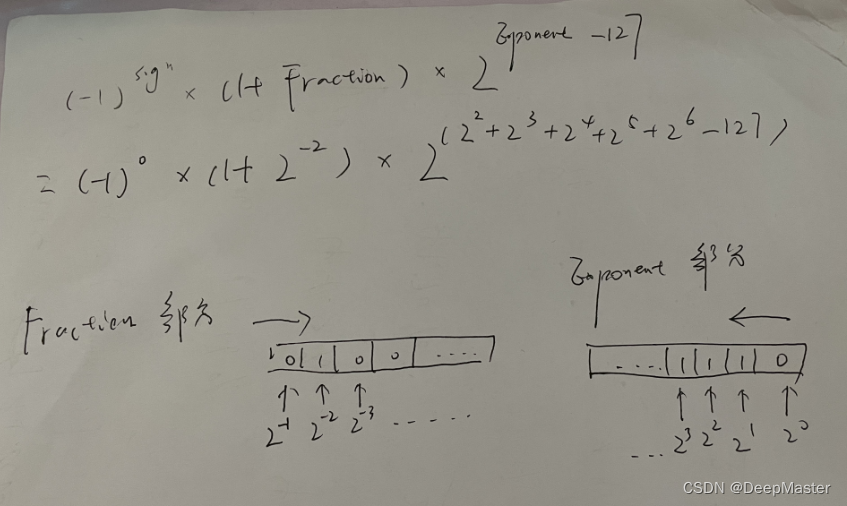 (-1)^sign × (1+ Fraction) × 2^Exponent -127
= (-1)^0 × (1+ 2^-2) × 2^(2^2+2^3+2^4+2^5+2^6-127)
Exponent 部分
Fraction 部分 →
←
0 1 0 0 ....
.... 1 1 1 0
↑ ↑ ↑
↑ ↑ ↑ ↑
2^-1 2^-2 2^-3 .....
... 2^3 2^2 2^1 2^0
CSDN @DeepMaster